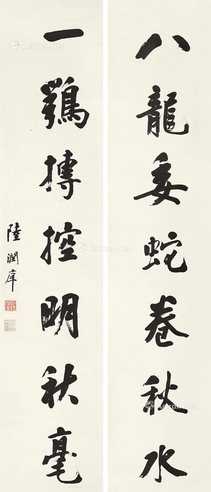 八龍委蛇卷秋水
一鶚摶控明秋毫
陸潤庠